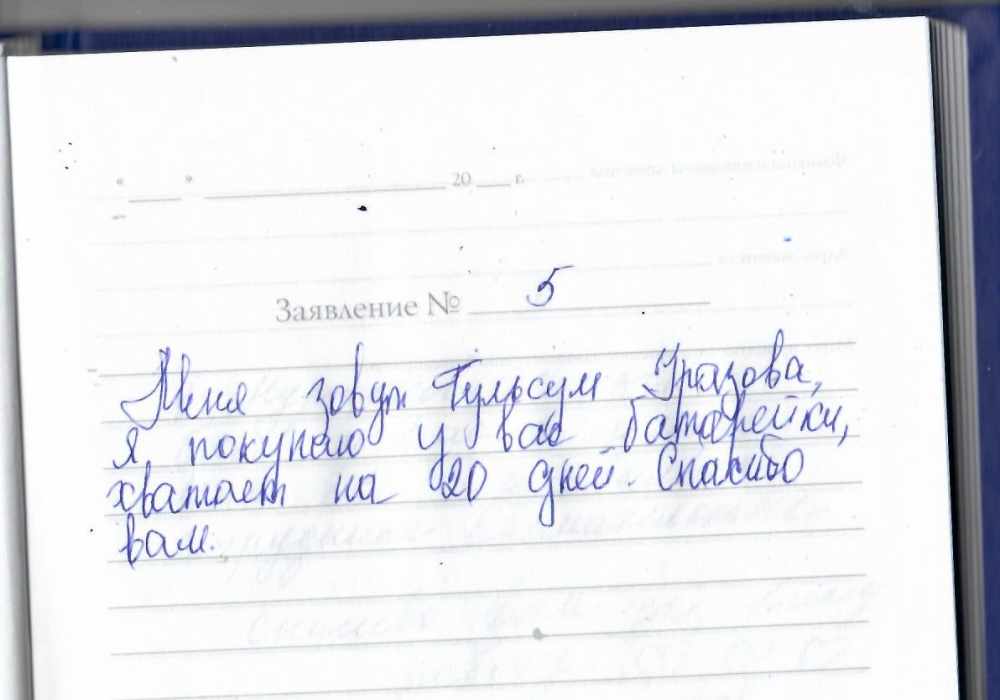 « » 20 г.
Заявление № 5
Меня зовут Гульсум Уразова,
я покупаю у вас батарейки,
хватает на 20 дней. Спасибо
вам.